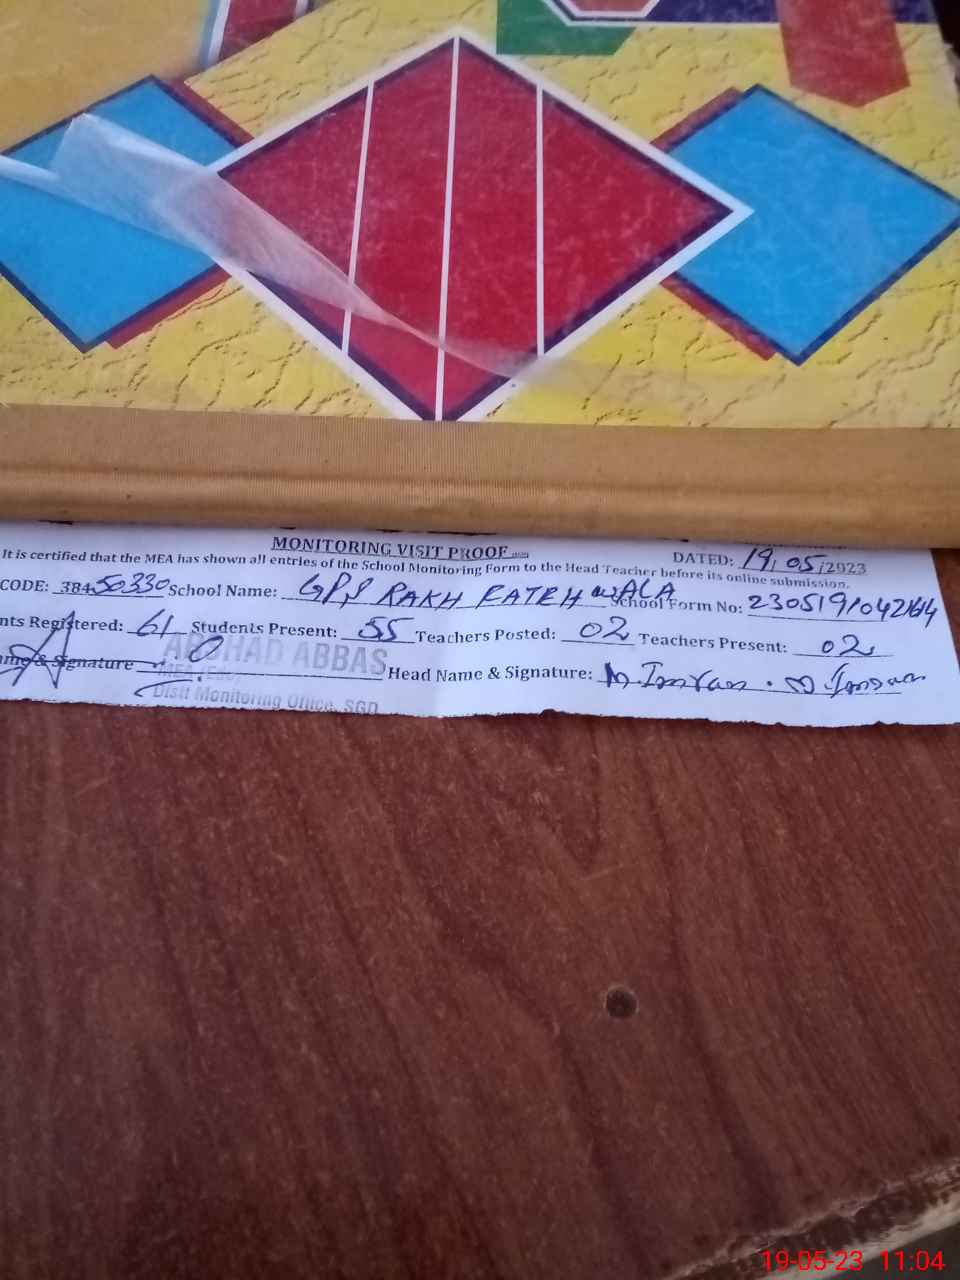 MONITORING VISIT PROOF
DATED: 19/05/2023
It is certified that the MEA has shown all entries of the School Monitoring Form to the Head Teacher before its online submission.
CODE: 38450330 School Name: GPS RAKH FATEH WALA School Form No:
nts Registered: 61 Students Present: 55 Teachers Posted: 02 Teachers Present: 02
me & Signature Head Name & Signature: M. Imran. M Imran
ABBAS
MEA
Distt Monitoring Office, SGD
19-05-23 11:04